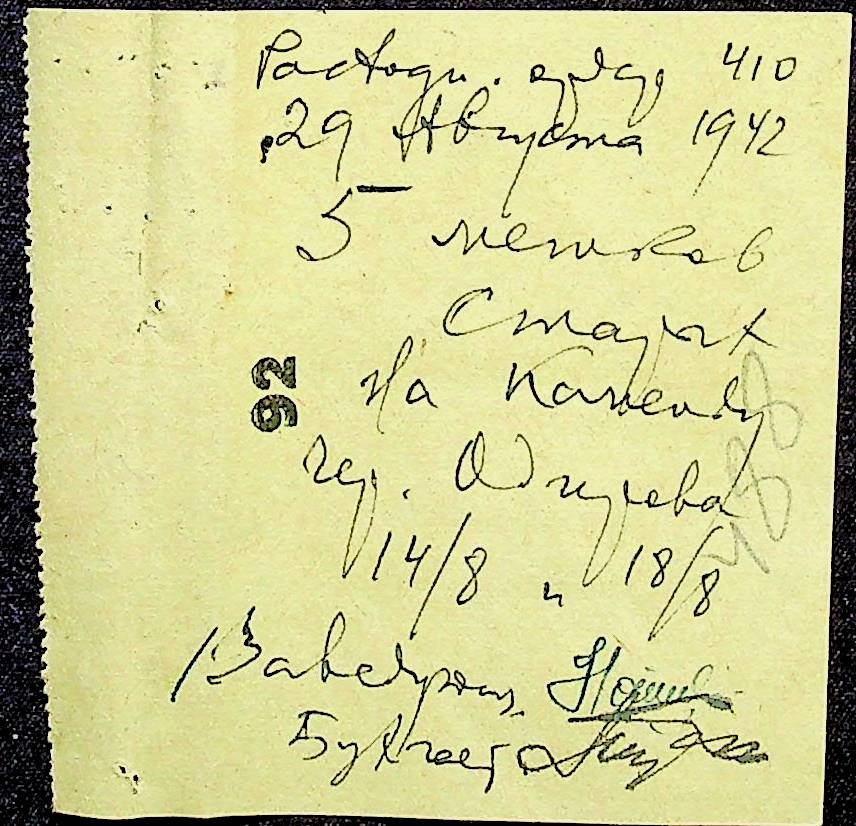 Расходн. ордер 410
29 Августа 1942
5 мешков
Старых
На Команду
чер.
14/8 и 18/8
Заведующ.
Бухгалтер
92